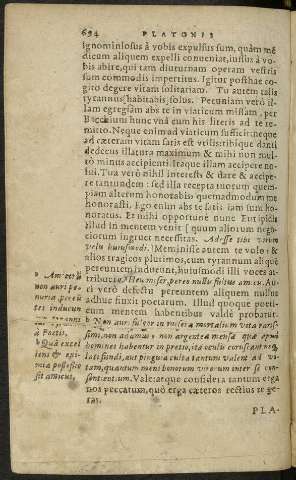 694 PLATONIS
ignominiosus à vobis expulsus sum, quàm me
dicum aliquem expelli conueniat, iussus à vo-
bis abire, qui tam diuturnam operam vestris
sum commodis impertitus. Igitur posthac co-
gito degere vitam solitariam. Tu autem talis
tyrannus habitabis solus. Pecuniam verò il-
lam egregiam abs te in viaticum missam, per
Bacchium hunc vnà cum his literis ad te re-
mitto. Neque enim ad viaticum sufficit: neque
ad cæteram vitam satis est vtilis: tibique danti
dedecus illatura maximum & mihi non mul-
tò minus accipienti. Itaque illam accipere no-
lui. Tua verò nihil interest & dare & accipe-
re tantundem: sed illa recepta tuorum quem-
piam alterum honorabis: quemadmodum me
honorasti. Ego enim abs te satis iam sum ho-
noratus. Et mihi opportunè nunc Euripidis
illud in mentem venit quum aliorum nego-
ciorum ingruet necessitas. Adesse tibi virum
velis huiusmodi. Meminisse autem te volo: &
alios tragicos plurimos, cum tyrannum aliquẽ
pereuntem inducunt, huiusmodi illi voces at-
tribuere. Heu miser, peres nullus fultus amicu. Au-
ri verò defectu pereuntem aliquem nullus
adhuc finxit poetarum. Illud quoque poeti-
cum mentem habentibus valdè probatur.
b Non auri fulgor in misera mortalium vita raris-
simi, non adamas: non argentea mensa quæ apud
homines habentur in pretio, ita oculis coruscant: neq;
lati fundi, aut pinguia culta tantum valent ad vi-
tam, quantum meni bonorum virorum inter se con-
sentientium. Vale: atque considera tantum erga
nos peccatum, quò erga cæteros rectius te ge-
ras.
PLA-
non auri pe-
nuria pereũ
tes inducun
à Poetis.
b Quã excel
lens & epi-
mia possessio
sit amicus.